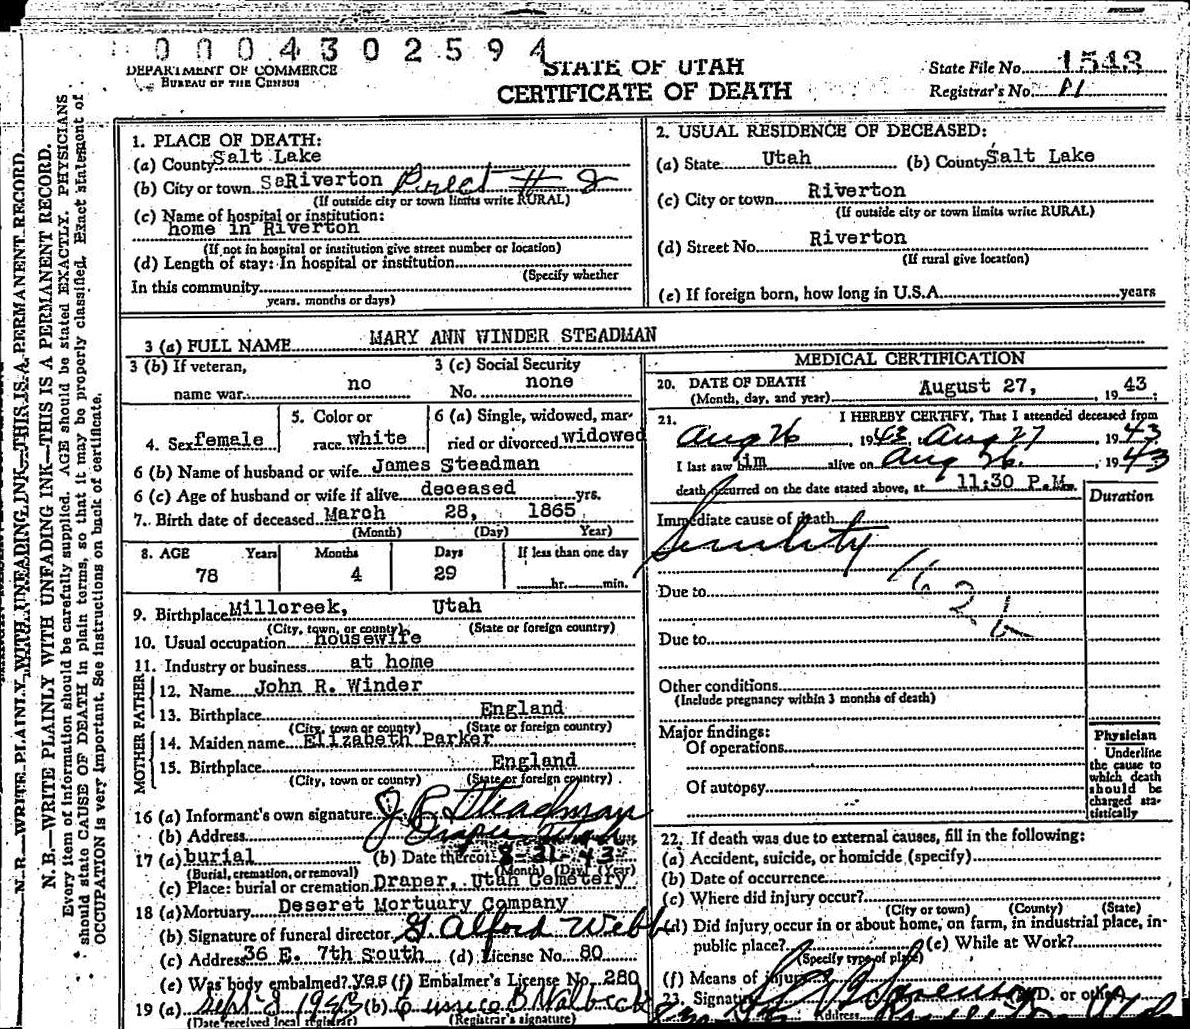 0004302594
DEPARTMENT OF COMMERCE
BUREAU OF THE CENSUS
STATE OF UTAH
CERTIFICATE OF DEATH
State File No. 1543
Registrar's No. 81
N. B.—WRITE PLAINLY WITH UNFADING INK—THIS IS A PERMANENT RECORD.
N. B.—WRITE PLAINLY WITH UNFADING INK—THIS IS A PERMANENT RECORD.
Every item of information should be carefully supplied. AGE should be stated EXACTLY. PHYSICIANS
should state CAUSE OF DEATH in plain terms, so that it may be properly classified. Exact statement of
OCCUPATION is very important. See instructions on back of certificate.
1. PLACE OF DEATH:
(a) County Salt Lake
(b) City or town Riverton Prect # 2
(If outside city or town limits write RURAL)
(c) Name of hospital or institution:
home in Riverton
(If not in hospital or institution give street number or location)
(d) Length of stay: In hospital or institution
(Specify whether
In this community
years, months or days)
2. USUAL RESIDENCE OF DECEASED:
(a) State Utah (b) County Salt Lake
(c) City or town Riverton
(If outside city or town limits write RURAL)
(d) Street No. Riverton
(If rural give location)
(e) If foreign born, how long in U.S.A. years
3 (a) FULL NAME MARY ANN WINDER STEADMAN
3 (b) If veteran,
name war no
3 (c) Social Security
No. none
4. Sex female
5. Color or
race white
6 (a) Single, widowed, mar-
ried or divorced widowed
6 (b) Name of husband or wife James Steadman
6 (c) Age of husband or wife if alive deceased yrs.
7. Birth date of deceased March 28, 1865
(Month) (Day) Year)
8. AGE Years Months Days If less than one day
78 4 29 hr. min.
9. Birthplace Millcreek, Utah
(City, town, or county) (State or foreign country)
10. Usual occupation housewife
11. Industry or business at home
FATHER
12. Name John R. Winder
13. Birthplace England
(City, town or county) (State or foreign country)
MOTHER
14. Maiden name Elizabeth Parker
15. Birthplace England
(City, town or county) (State or foreign country)
16 (a) Informant's own signature J R Steadman
(b) Address Draper Utah
17 (a) burial (b) Date thereof 8-31-43
(Burial, cremation, or removal) (Month) (Day) (Year)
(c) Place: burial or cremation Draper, Utah Cemetery
18 (a) Mortuary Deseret Mortuary Company
(b) Signature of funeral director G Alford Webb
(c) Address 36 E. 7th South (d) License No. 80
(e) Was body embalmed? yes (f) Embalmer's License No. 280
19 (a) Sept 3 1943 (b) Eunice B
(Date received local registrar) (Registrar's signature)
MEDICAL CERTIFICATION
20. DATE OF DEATH
(Month, day, and year) August 27, 1943
21. I HEREBY CERTIFY, That I attended deceased from
Aug 26, 1943, Aug 27, 1943
I last saw him alive on Aug 26, 1943
death occurred on the date stated above, at 11:30 P.M.
Duration
Immediate cause of death
Senility
162b
Due to
Due to
Other conditions
(Include pregnancy within 3 months of death)
Major findings:
Of operations
Of autopsy
Physician
Underline
the cause to
which death
should be
charged sta-
tistically
22. If death was due to external causes, fill in the following:
(a) Accident, suicide, or homicide (specify)
(b) Date of occurrence
(c) Where did injury occur?
(City or town) (County) (State)
(d) Did injury occur in or about home, on farm, in industrial place, in
public place? (e) While at Work?
(Specify type of place)
(f) Means of injury
23. Signature Sorenson (M.D. or other)
Address Riverton Utah